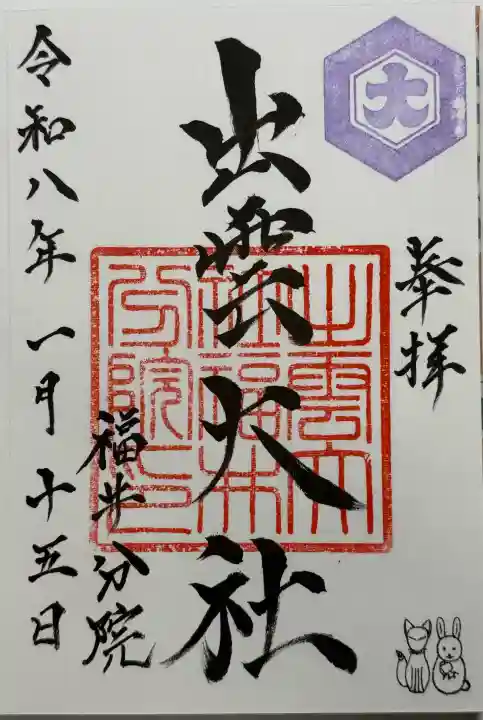 大
奉拝
出雲大社
出雲大
社福井
分院印
福井分院
令和八年一月十五日